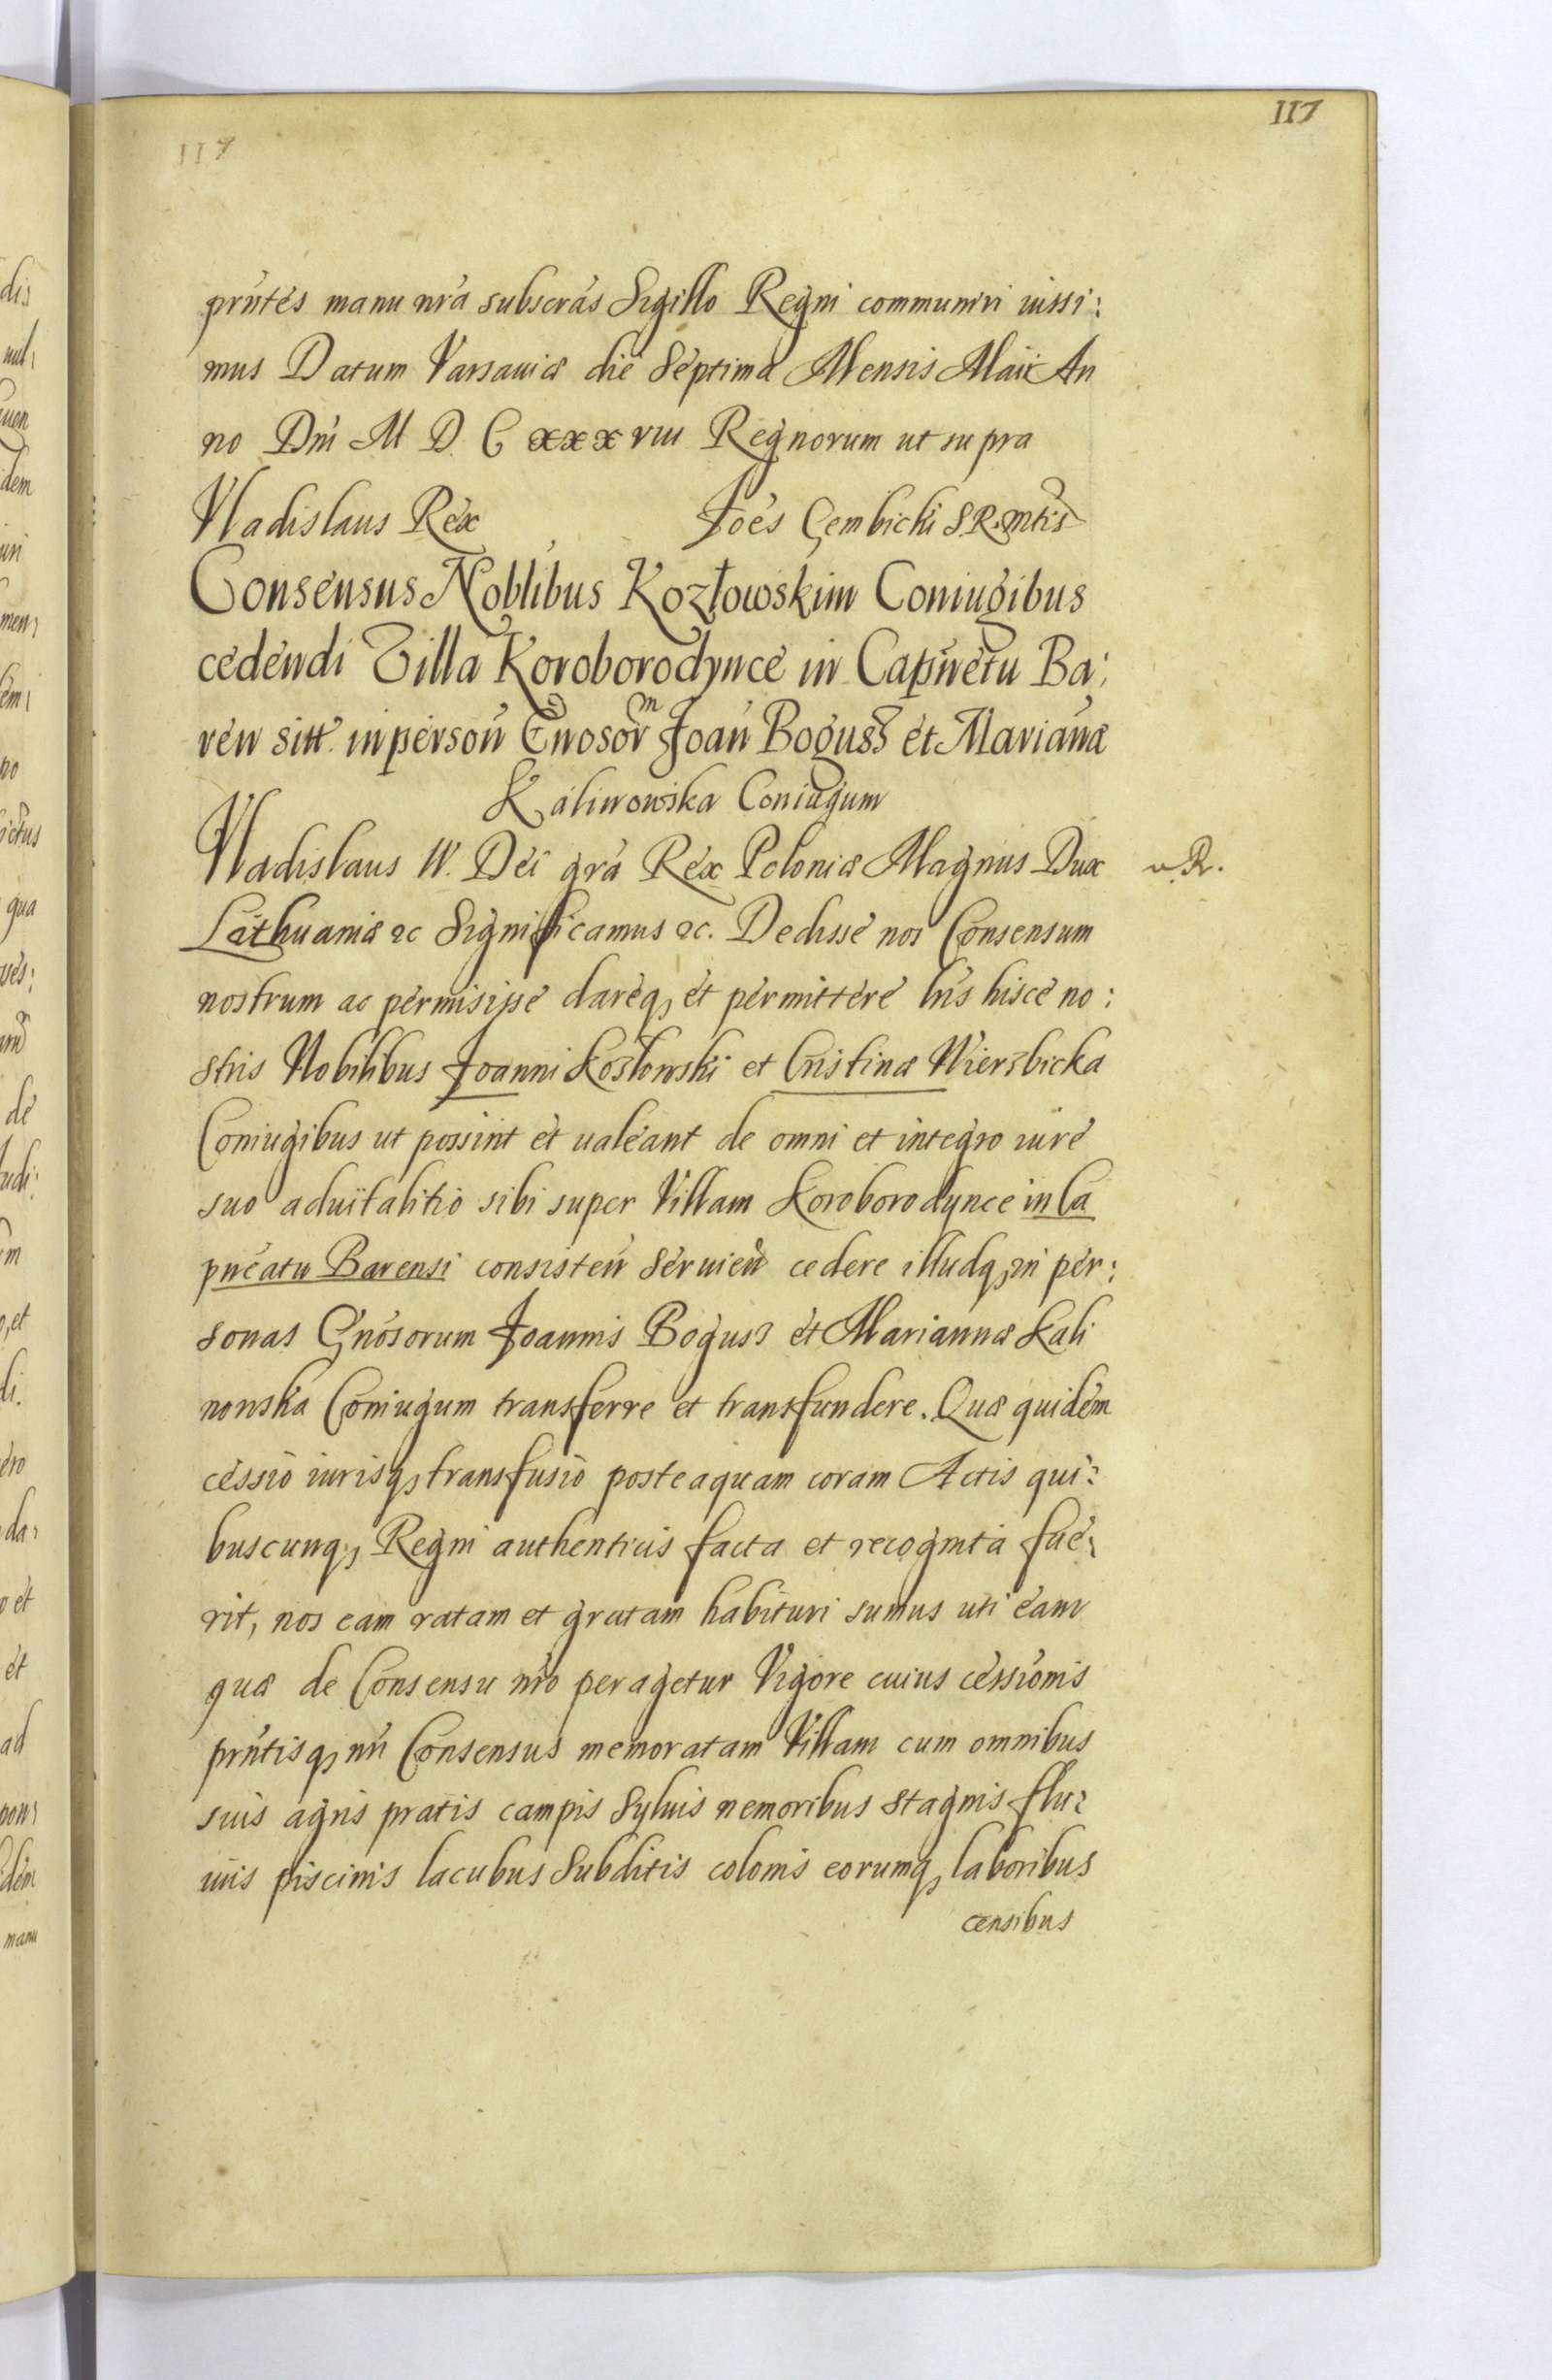 117
117
prntes manu nra subscras Sigillo Regni communiri iussi:
mus Datum Varsauiæ die Septima Mensis Maii An
no Dni M D. C xxxviii Regnorum ut supra
Vladislaus Rex Joes Gembicki S.R.Mtis
Consensus Noblibus Kozłowskim Coniugibus
cedendi Villa Koroborodynce in Capnetu Ba:
ren sitt. in person Gnosorͫ Joan Bogusz et Marianæ
Kalinowska Coniugum
Vladislaus IV. Dei gra Rex Poloniæ Magnus Dux
Lithuaniæ ꝛc Significamus ꝛc. Dedisse nos Consensum
nostrum ac permisisse dareq, et permittere lris hisce no:
stris Nobilibus Joanni Kozłowski et Cristinæ Wierzbicka
Coniugibus ut possint et ualeant de omni et integro iure
suo aduitalitio sibi super Villam Koroborodynce in Ca
pneatu Barensi consisten seruien cedere illudq, in per:
sonas Gnosorum Joannis Bogusz et Mariannæ Kali
nowska Coniugum transferre et transfundere. Quæ quidem
cessio iurisq, transfusio posteaquam coram Actis qui:
buscunq, Regni authenticis facta et recognita fue:
rit, nos eam ratam et gratam habituri sumus uti eam
quæ de Consensu nro peragetur Vigore cuius cessionis
prntisq, nri Consensus memoratam Villam cum omnibus
suis agris pratis campis Syluis nemoribus stagnis flu:
uiis piscinis lacubus Subditis colonis eorumq, laboribus
censibus